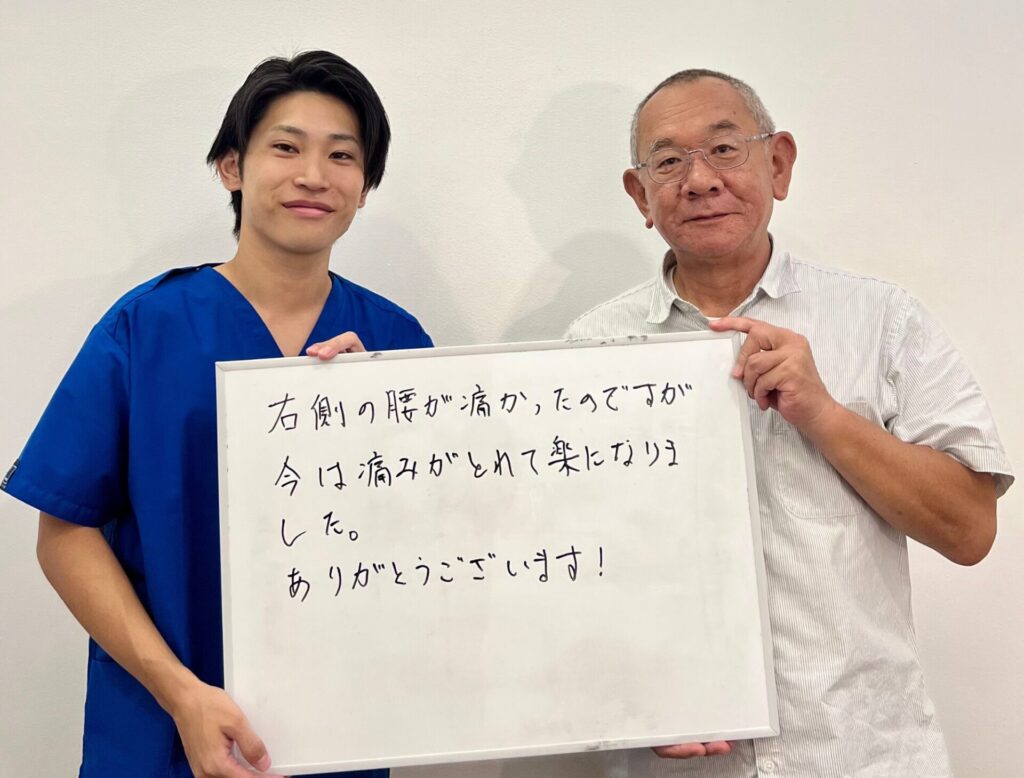 右側の腰が痛かったのですが
今は痛みがとれて楽になりま
した。
ありがとうございます!